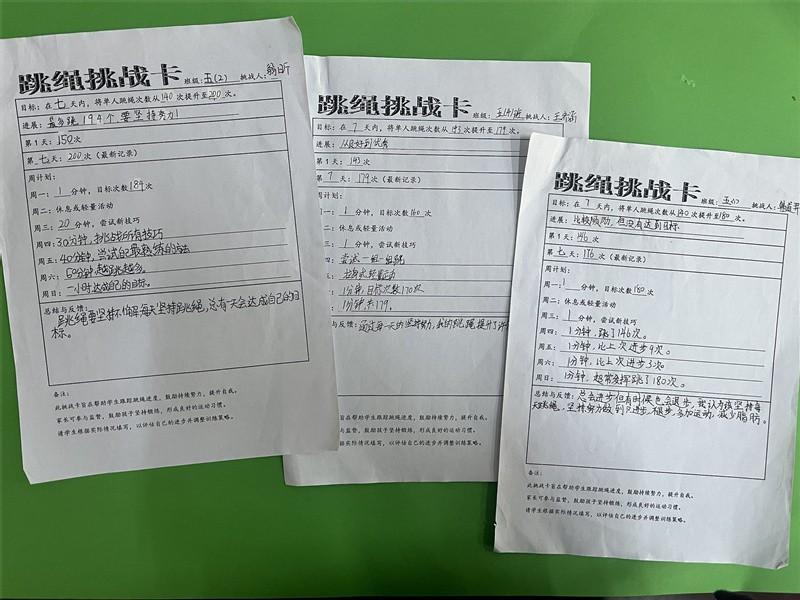 跳绳挑战卡 班级:五(2) 挑战人:
目标:在七天内,将单人跳绳次数从140次提升至200次。
进展:最多跳194个要坚持努力!
第1天:150次
第七天:200次(最新记录)
周计划:
周一:1分钟,目标次数184次
周二:休息或轻量活动
周三:20分钟,尝试新技巧
周四:30分钟,挑战所有技巧
周五:40分钟,尝试自己最熟练的方法
周六:50分钟,越跳越多。
周日:一小时达成自己的目标。
总结与反馈:
跳绳要坚持不懈每天坚持跳绳,总有一天会达成自己的目
标。
备注:
此挑战卡旨在帮助学生跟踪跳绳进度,鼓励持续努力,提升自我。
家长可参与监督,鼓励孩子坚持锻炼,形成良好的运动习惯。
请学生根据实际情况填写,以评估自己的进步并调整训练策略。
跳绳挑战卡 班级: 挑战人:
目标:在7天内,将单人跳绳次数从143次提升至179次。
进展:从良好到优秀
第1天:143次
第7天:179次(最新记录)
周计划:
1分钟,目标次数160次
休息或轻量活动
1分钟,尝试新技巧
尝试一组一组跳
1分钟,目标次数170次
1分钟,共179。
与反馈:通过每一天的坚持努力,我的跳绳提升了
旨在帮助学生跟踪跳绳进度,鼓励持续努力,提升自我。
与监督,鼓励孩子坚持锻炼,形成良好的运动习惯。
据实际情况填写,以评估自己的进步并调整训练策略。
跳绳挑战卡 班级:五(1) 挑战人:
目标:在7天内,将单人跳绳次数从140次提升至180次。
进展:比较成功,但没有达到目标
第1天:146次
第七天:176次(最新记录)
周计划:
周一:1分钟,目标次数180次
周二:休息或轻量活动
周三:1分钟,尝试新技巧
周四:1分钟,跳了146次。
周五:1分钟,比上次进步9次。
周六:1分钟,比上次进步3次
周日:1分钟,超常发挥跳了180次。
总结与反馈:总会进步但有时候也会退步,我认为该坚持每
天跳绳,坚持努力做到只进步,不退步,多加运动,减少脂肪。
备注:
此挑战卡旨在帮助学生跟踪跳绳进度,鼓励持续努力,提升自我。
家长可参与监督,鼓励孩子坚持锻炼,形成良好的运动习惯。
请学生根据实际情况填写,以评估自己的进步并调整训练策略。